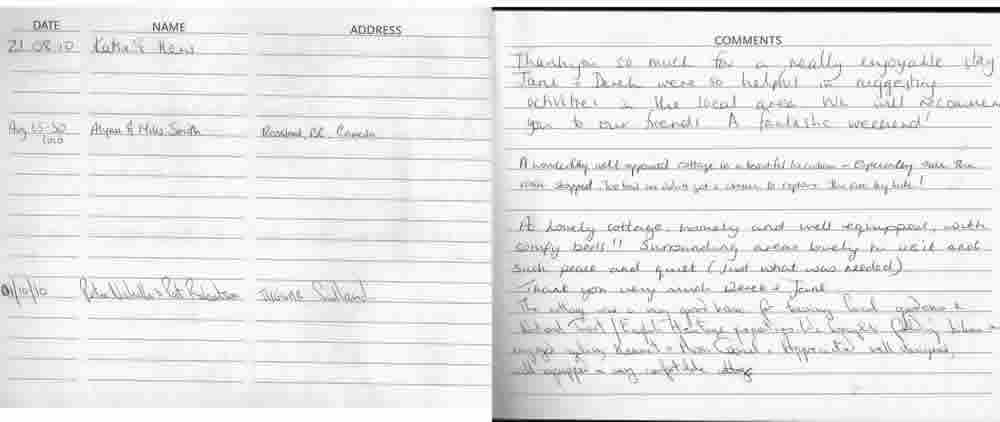 DATE NAME ADDRESS
21.08.10 Katie &
Aug 25-30 & Miles Smith Rossland, BC Canada
2010
/10/10 Scotland
COMMENTS
Thankyou so much for a really enjoyable stay
Jane + Derek were so helpful in suggesting
activities in the local area. We will recommend
you to our friends. A fantastic weekend!
A wonderfully well appointed cottage in a beautiful location - especially once the
rain stopped. Too bad we didn't get a chance to explore the area by bike!
A lovely cottage, homely and well equipped, with
comfy beds!! Surrounding areas lovely to visit and
such peace and quiet (Just what was needed)
Thank you very much Derek + Jane
The cottage was a very good base for touring local gardens &
National Trust / English Heritage properties
enjoyed walking + Avon Canal. Appreciated well designed,
well equipped + very comfortable cottage